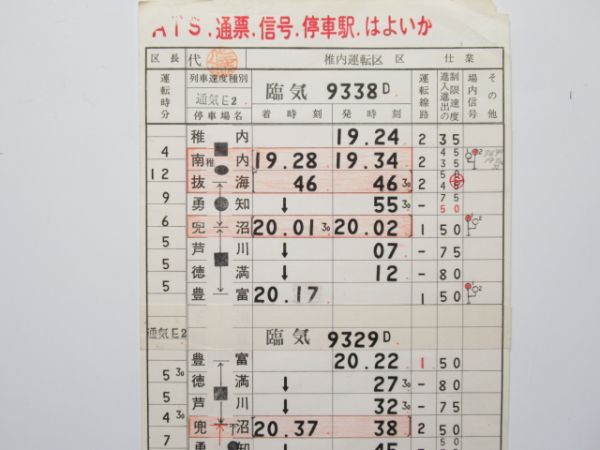 ATS.通票.信号.停車駅.はよいか
区長 代 稚内運転区 区 仕業
運転時分 列車速度種別 通気E2 臨気 9338D 運転線路 制限速度 進入進出の 場内信号 その他
停車場名 着時刻 発時刻
稚内 19.24 2 35
4
南稚内 19.28 19.34 2 45 35
12
抜海 46 46 30 2
9
勇知 ↓ 55 30 - 75 50
6
兜沼 20.01 30 20.02 1 50
5
芦川 ↓ 07 - 75
5
徳満 ↓ 12 - 80
5
豊富 20.17 1 50
通気E2 臨気 9329D
豊富 20.22 1 50
5 30
徳満 ↓ 27 30 - 80
5
芦川 ↓ 32 30 - 75
4 30
兜沼 20.37 38 2 50
7
勇知 ↓ 45